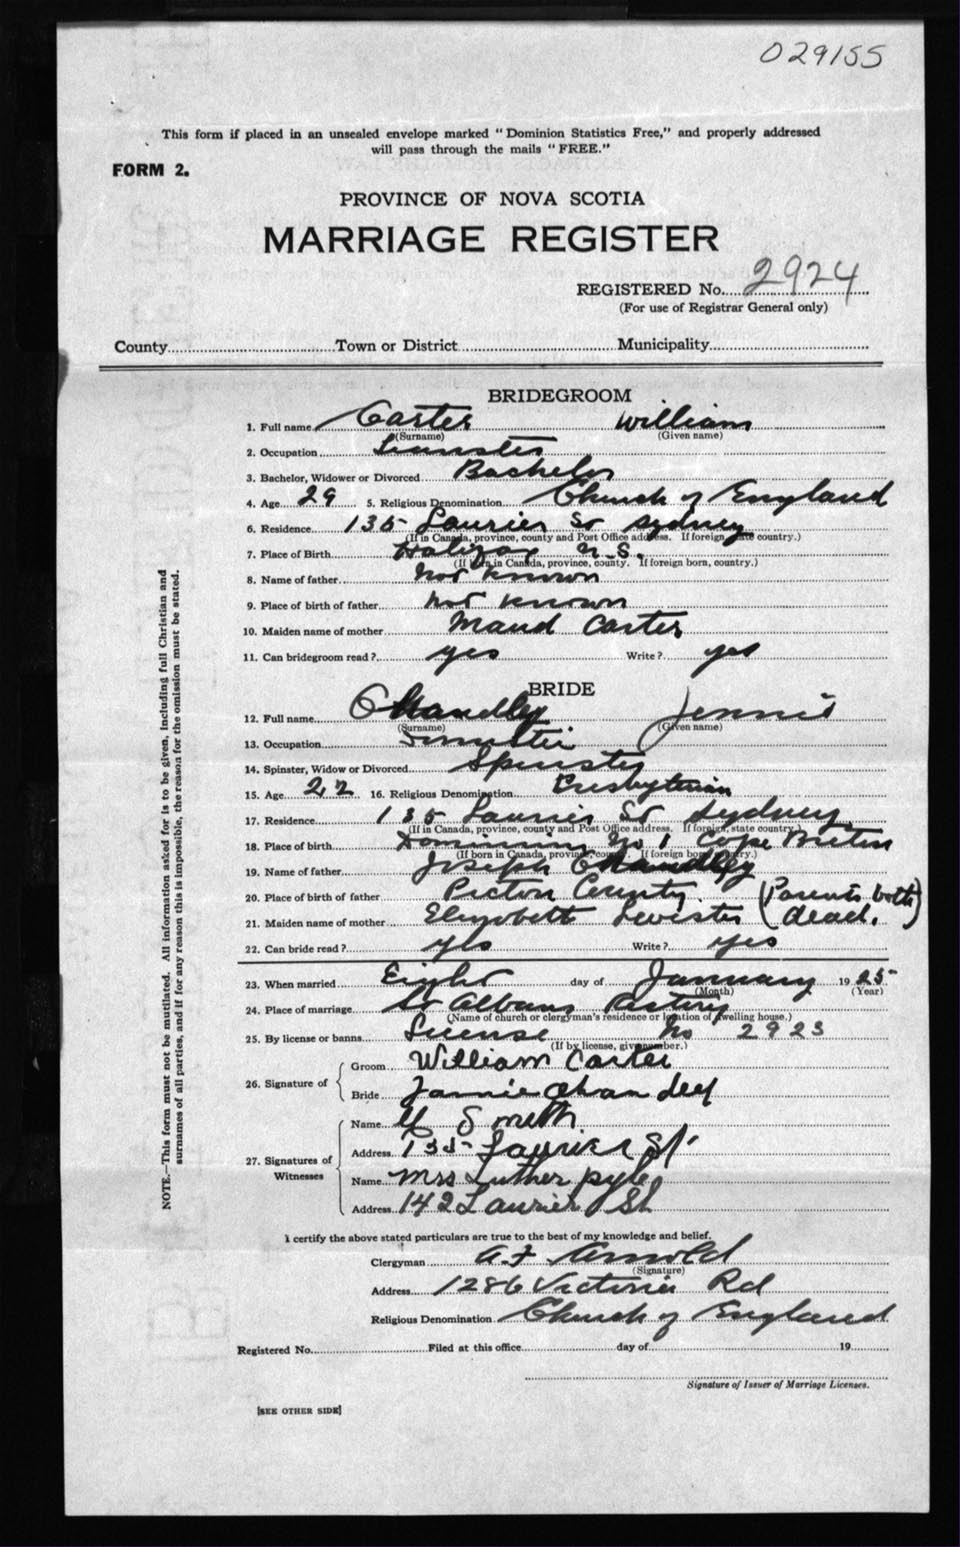 029155
This form if placed in an unsealed envelope marked "Dominion Statistics Free," and properly addressed
will pass through the mails "FREE."
FORM 2.
PROVINCE OF NOVA SCOTIA
MARRIAGE REGISTER
REGISTERED No. 2924
(For use of Registrar General only)
County Town or District Municipality
BRIDEGROOM
1. Full name Carter William
(Surname) (Given name)
2. Occupation Teamster
3. Bachelor, Widower or Divorced Bachelor
4. Age 29 5. Religious Denomination Church of England
6. Residence 135 Laurier St Sydney
(If in Canada, province, county and Post Office address. If foreign, state country.)
7. Place of Birth Halifax N.S.
(If born in Canada, province, county. If foreign born, country.)
8. Name of father not known
9. Place of birth of father not known
10. Maiden name of mother Maud Carter
11. Can bridegroom read? yes Write? yes
BRIDE
12. Full name Chandley Jennie
(Surname) (Given name)
13. Occupation
14. Spinster, Widow or Divorced Spinster
15. Age 22 16. Religious Denomination Presbyterian
17. Residence 135 Laurier St Sydney
(If in Canada, province, county and Post Office address. If foreign, state country.)
18. Place of birth Dominion No 1 Cape Breton
(If born in Canada, province, county. If foreign born, country.)
19. Name of father Joseph Chandley
20. Place of birth of father Pictou County (Parents both
21. Maiden name of mother Elizabeth dead.)
22. Can bride read? yes Write? yes
23. When married Eight day of January 1925
(Month) (Year)
24. Place of marriage St Albans Rectory
(Name of church or clergyman's residence or location of dwelling house.)
25. By license or banns License No 2923
(If by license, give number.)
26. Signature of
Groom William Carter
Bride Jannie Chandley
27. Signatures of
Witnesses
Name Smeth
Address 135 Laurier St.
Name Mrs Luther Pyle
Address 142 Laurier St
I certify the above stated particulars are true to the best of my knowledge and belief.
Clergyman A. F Arnold
(Signature)
Address 1286 Victoria Rd
Religious Denomination Church of England
Registered No. Filed at this office day of 19
Signature of Issuer of Marriage Licenses.
[SEE OTHER SIDE]
NOTE.—This form must not be mutilated. All information asked for is to be given, including full Christian and
surnames of all parties, and if for any reason this is impossible, the reason for the omission must be stated.